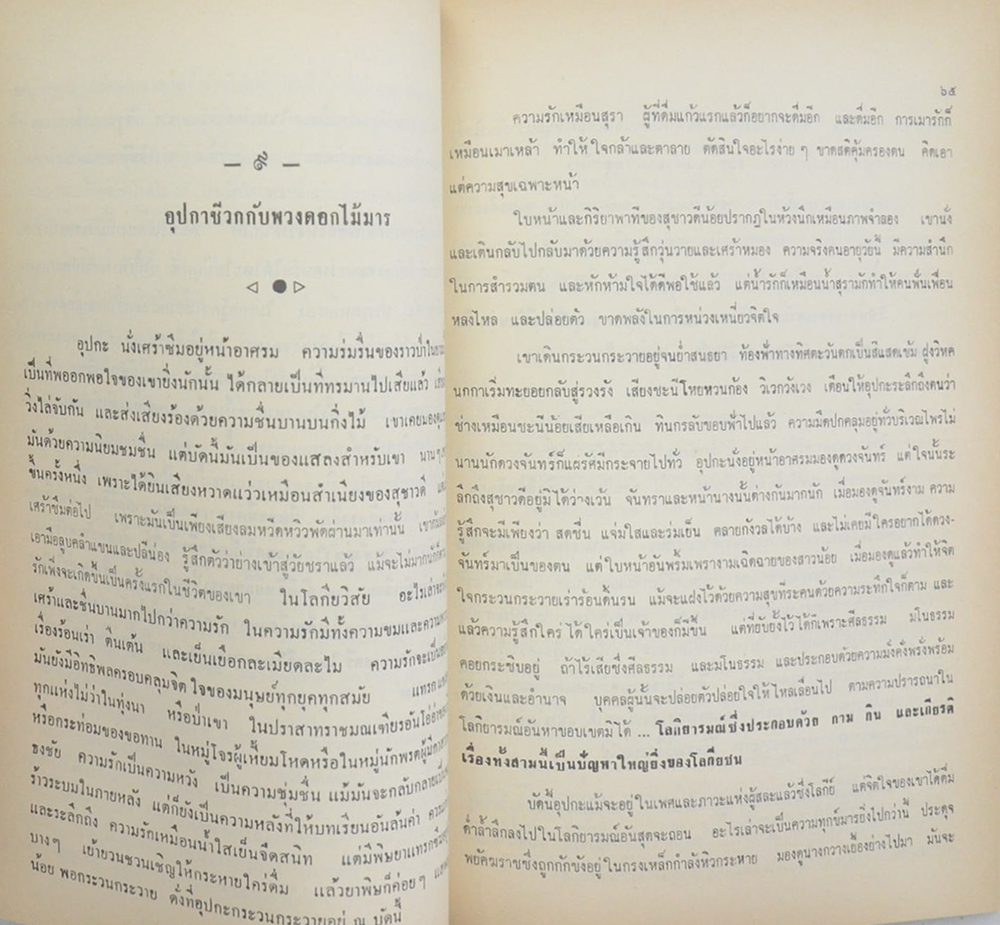 — ๙ —
อุปกาชีวกกับพวงดอกไม้มาร
อุปกะ นั่งเศร้าซึมอยู่หน้าอาศรม ความร่มรื่นของราวป่าใน
เป็นที่พออกพอใจของเขายิ่งนักนั้น ได้กลายเป็นที่ทรมานไปเสียแล้ว
วิ่งไล่จับกัน และส่งเสียงร้องด้วยความชื่นบานบนกิ่งไม้ เขาเคยมองดู
มันด้วยความนิยมชมชื่น แต่บัดนี้มันเป็นของแสลงสำหรับเขา นานๆ
ขึ้นครั้งหนึ่ง เพราะได้ยินเสียงหวาดแว่วเหมือนสำเนียงของสุชาวดี
เศร้าซึมต่อไป เพราะมันเป็นเพียงเสียงลมหวีดหวิวพัดผ่านมาเท่านั้น
เอามือลูบคลำแขนและปลีน่อง รู้สึกตัวว่าย่างเข้าสู่วัยชราแล้ว แม้จะไม่มากนัก
รักเพิ่งจะเกิดขึ้นเป็นครั้งแรกในชีวิตของเขา ในโลกิยวิสัย อะไรเล่า
เศร้าและชื่นบานมากไปกว่าความรัก ในความรักมีทั้งความขมและความ
เรื่องร้อนเร่า ตื่นเต้น และเย็นเยือกละเมียดละไม ความรักจะเป็น
มันยังมีอิทธิพลครอบคลุมจิตใจของมนุษย์ทุกยุคทุกสมัย แทรก
ทุกแห่งไม่ว่าในทุ่งนา หรือป่าเขา ในปราสาทราชมณเฑียรอันโอ่อ่า
หรือกระท่อมของขอทาน ในหมู่โจรผู้เหี้ยมโหดหรือในหมู่นักพรตผู้มี
ธงชัย ความรักเป็นความหวัง เป็นความชุ่มชื่น แม้มันจะกลับกลายเป็น
ร้าวระบมในภายหลัง แต่ก็ยังเป็นความหลังที่ให้บทเรียนอันล้ำค่า
และระลึกถึง ความรักเหมือนน้ำใสเย็นจืดสนิท แต่มีพิษยาแทรก
บางๆ เย้ายวนชวนเชิญให้กระหายใคร่ดื่ม แล้วยาพิษก็ค่อยๆ
น้อย พอกระวนกระวาย ดั่งที่อุปกะกระวนกระวายอยู่ ณ บัดนี้
๖๕
ความรักเหมือนสุรา ผู้ที่ดื่มแก้วแรกแล้วก็อยากจะดื่มอีก และดื่มอีก การเมารักก็
เหมือนเมาเหล้า ทำให้ใจกล้าและตาลาย ตัดสินใจอะไรง่ายๆ ขาดสติคุ้มครองตน คิดเอา
แต่ความสุขเฉพาะหน้า
ใบหน้าและกิริยาพาทีของสุชาวดีน้อยปรากฏในห้วงนึกเหมือนภาพจำลอง เขานั่ง
และเดินกลับไปกลับมาด้วยความรู้สึกวุ่นวายและเศร้าหมอง ความจริงคนอายุวัยนี้ มีความสำนึก
ในการสำรวมตน และหักห้ามใจได้ดีพอใช้แล้ว แต่น้ำรักก็เหมือนน้ำสุรามักทำให้คนฟั่นเฟือน
หลงไหล และปล่อยตัว ขาดพลังในการหน่วงเหนี่ยวจิตใจ
เขาเดินกระวนกระวายอยู่จนย่ำสนธยา ท้องฟ้าทางทิศตะวันตกเป็นสีแสดเข้ม ฝูงวิหค
นกกาเริ่มทะยอยกลับสู่รวงรัง เสียงชะนีโหยหวนก้อง วิเวกวังเวง เตือนให้อุปกะระลึกถึงตนว่า
ช่างเหมือนชะนีน้อยเสียเหลือเกิน ทินกรลับขอบฟ้าไปแล้ว ความมืดปกคลุมอยู่ทั่วบริเวณไพรไม่
นานนักดวงจันทร์ก็แผ่รัศมีกระจายไปทั่ว อุปกะนั่งอยู่หน้าอาศรมมองดูดวงจันทร์ แต่ใจนั้นระ
ลึกถึงสุชาวดีอยู่มิได้ว่างเว้น จันทราและหน้านางนั้นต่างกันมากนัก เมื่อมองดูจันทร์งาม ความ
รู้สึกจะมีเพียงว่า สดชื่น แจ่มใสและร่มเย็น คลายกังวลได้บ้าง และไม่เคยมีใครอยากได้ดวง-
จันทร์มาเป็นของตน แต่ใบหน้าอันพริ้มเพรางามเฉิดฉายของสาวน้อย เมื่อมองดูแล้วทำให้จิต
ใจกระวนกระวายเร่าร้อนดิ้นรน แม้จะแฝงไว้ด้วยความสุขที่ระคนด้วยความระทึกใจก็ตาม และ
แล้วความรู้สึกใคร่ได้ใคร่เป็นเจ้าของก็มีขึ้น แต่ที่ยับยั้งไว้ได้ก็เพราะศีลธรรม มโนธรรม
คอยกระซิบอยู่ ถ้าไร้เสียซึ่งศีลธรรม และมโนธรรม และประกอบด้วยความมั่งคั่งพรั่งพร้อม
ด้วยเงินและอำนาจ บุคคลผู้นั้นจะปล่อยตัวปล่อยใจให้ไหลเลื่อนไป ตามความปรารถนาใน
โลกิยารมณ์อันหาขอบเขตมิได้ ... โลกิยารมณ์ซึ่งประกอบด้วย กาม กิน และเกียรติ
เรื่องทั้งสามนี้เป็นปัญหาใหญ่ยิ่งของโลกียชน
บัดนี้อุปกะแม้จะอยู่ในเพศและภาวะแห่งผู้สละแล้วซึ่งโลกีย์ แต่จิตใจของเขาได้ดื่ม
ด่ำล้ำลึกลงไปในโลกิยารมณ์อันสุดจะถอน อะไรเล่าจะเป็นความทุกข์มารยิ่งไปกว่านี้ ประดุจ
พยัคฆราชซึ่งถูกกักขังอยู่ในกรงเหล็กกำลังหิวกระหาย มองดูนางกวางเยื้องย่างไปมา มันจะ